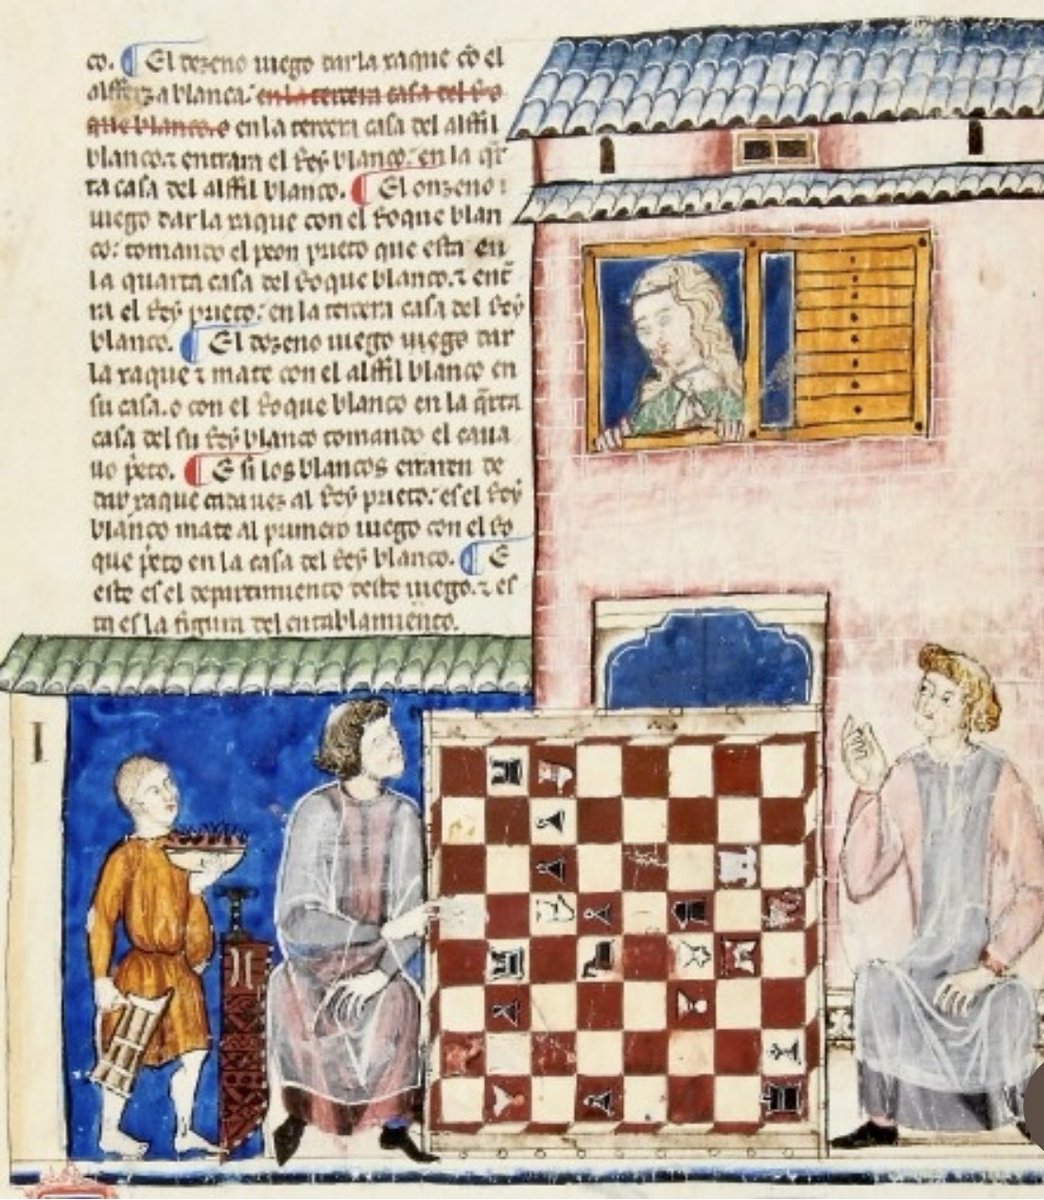 co. ¶ El dezeno iuego dar la xaque cõ el
alfferza blanca. en la tercera casa del Ro
que blanco. o en la tercera casa del alffil
blanco. ⁊ entrara el Rey blanco. en la q̃r
ta casa del alffil blanco. ¶ El onzeno
iuego dar la xaque con el Roque blan
co. tomando el peon prieto que esta en
la quarta casa del Roque blanco. ⁊ ent̃
ra el Rey prieto. en la tercera casa del Rey
blanco. ¶ El dozeno iuego dar
la xaque ⁊ mate con el alffil blanco en
su casa. o con el Roque blanco en la q̃rta
casa del su Rey blanco tomando el caua
llo p̃eto. ¶ E si los blancos erraren de
dar xaque cada uez al Rey prieto. es el Rey
blanco mate al primero iuego con el Ro
que p̃eto en la casa del Rey blanco. ¶ E
este es el departimiento deste iuego. ⁊ es
ta es la figura del entablamiento.